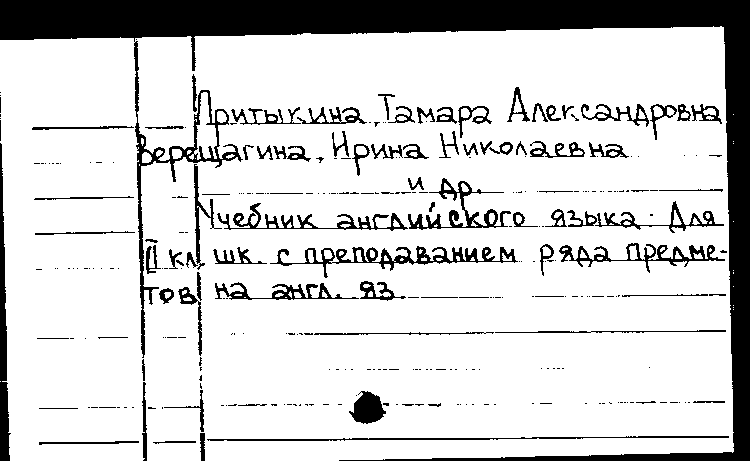 Притыкина, Тамара Александровна
Верещагина, Ирина Николаевна
и др.
Учебник английского языка. Для
II кл. шк. с преподаванием ряда предме-
тов на англ. яз.